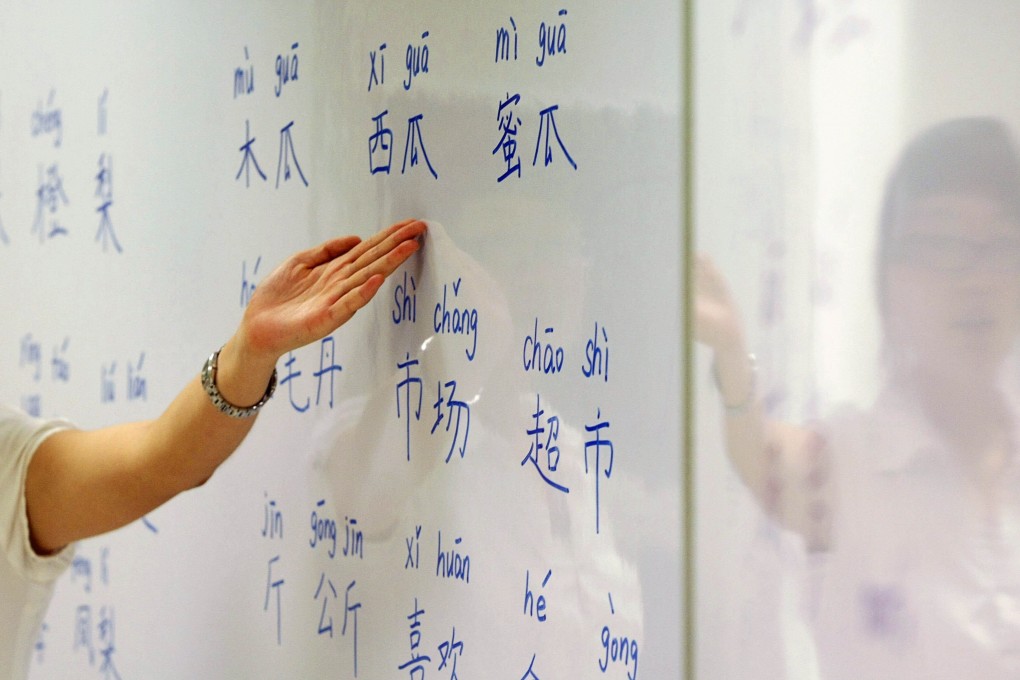 chéng lí mù guā xī guā mì guā
橙 梨 木瓜 西瓜 蜜瓜
shì chǎng chāo shì
毛丹 市场 超市
jīn gōng jīn xǐ huān hé gòng
斤 公斤 喜欢
凤梨